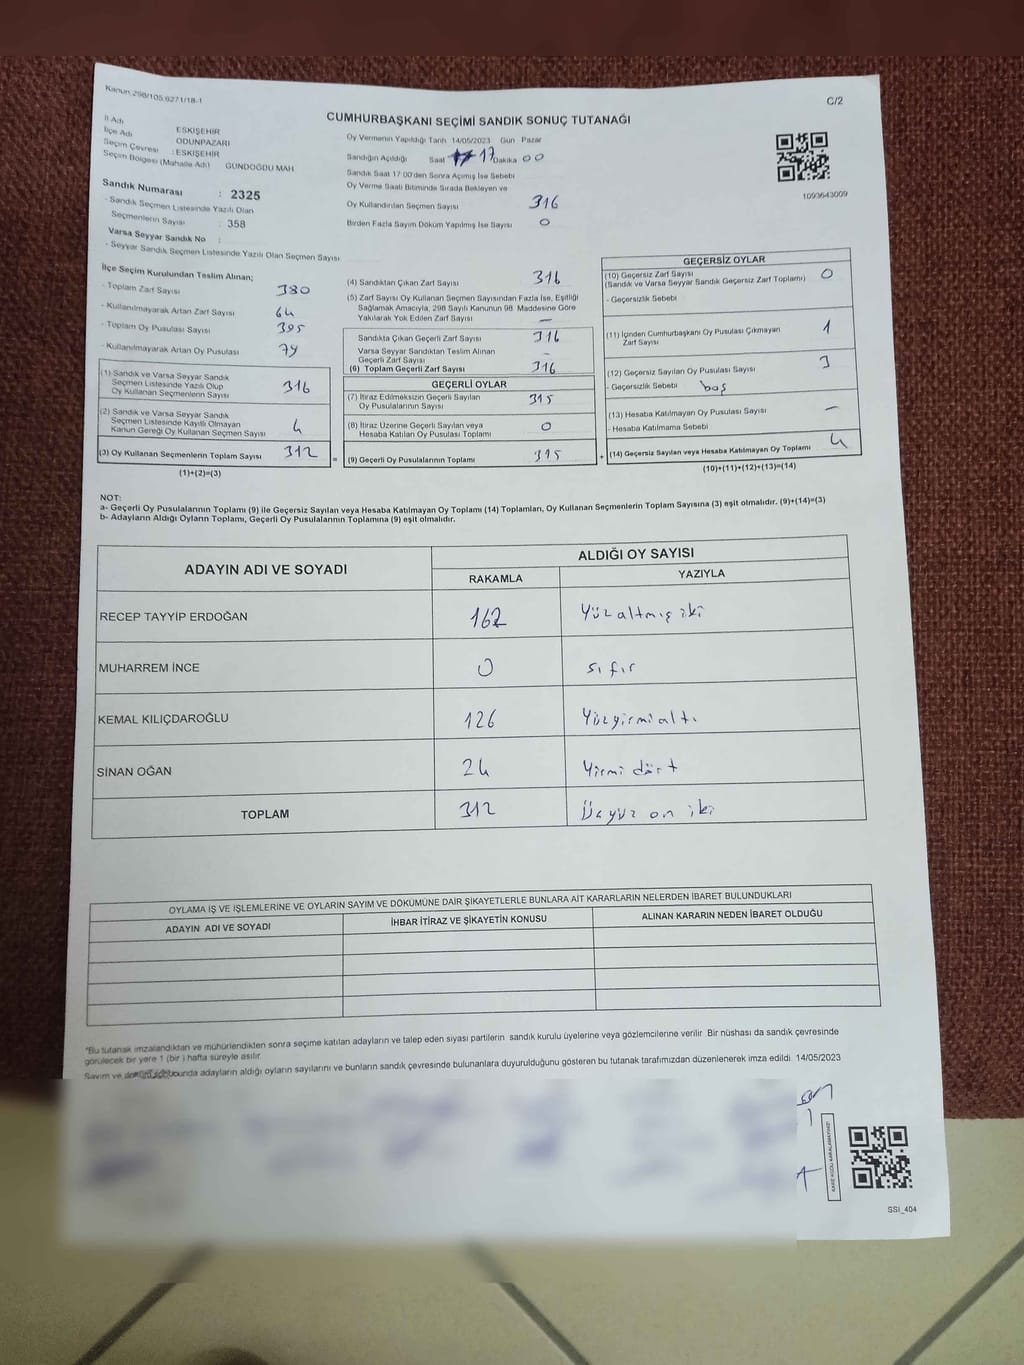 Kanun 298/105 6271/18-1
C/2
CUMHURBAŞKANI SEÇİMİ SANDIK SONUÇ TUTANAĞI
İl Adı
İlçe Adı ESKİŞEHİR
Seçim Çevresi ODUNPAZARI
Seçim Bölgesi (Mahalle Adı) : ESKİŞEHİR
GÜNDOĞDU MAH
Sandık Numarası : 2325
- Sandık Seçmen Listesinde Yazılı Olan
Seçmenlerin Sayısı : 358
Varsa Seyyar Sandık No :
- Seyyar Sandık Seçmen Listesinde Yazılı Olan Seçmen Sayısı
Oy Vermenin Yapıldığı Tarih 14/05/2023 Gün Pazar
Sandığın Açıldığı Saat 17 Dakika 00
Sandık Saat 17 00'den Sonra Açılmış İse Sebebi
Oy Verme Saati Bitiminde Sırada Bekleyen ve
Oy Kullandırılan Seçmen Sayısı 316
Birden Fazla Sayım Döküm Yapılmış İse Sayısı 0
1093643009
İlçe Seçim Kurulundan Teslim Alınan;
- Toplam Zarf Sayısı 380
- Kullanılmayarak Artan Zarf Sayısı 64
- Toplam Oy Pusulası Sayısı 395
- Kullanılmayarak Artan Oy Pusulası 79
(1) Sandık ve Varsa Seyyar Sandık
Seçmen Listesinde Yazılı Olup
Oy Kullanan Seçmenlerin Sayısı 316
(2) Sandık ve Varsa Seyyar Sandık
Seçmen Listesinde Kayıtlı Olmayan
Kanun Gereği Oy Kullanan Seçmen Sayısı 4
(3) Oy Kullanan Seçmenlerin Toplam Sayısı 312
(1)+(2)=(3)
(4) Sandıktan Çıkan Zarf Sayısı 316
(5) Zarf Sayısı Oy Kullanan Seçmen Sayısından Fazla İse, Eşitliği
Sağlamak Amacıyla, 298 Sayılı Kanunun 98. Maddesine Göre
Yakılarak Yok Edilen Zarf Sayısı –
Sandıkta Çıkan Geçerli Zarf Sayısı 316
Varsa Seyyar Sandıktan Teslim Alınan
Geçerli Zarf Sayısı –
(6) Toplam Geçerli Zarf Sayısı 316
GEÇERLİ OYLAR
(7) İtiraz Edilmeksizin Geçerli Sayılan
Oy Pusulalarının Sayısı 315
(8) İtiraz Üzerine Geçerli Sayılan veya
Hesaba Katılan Oy Pusulası Toplamı 0
= (9) Geçerli Oy Pusulalarının Toplamı 315
GEÇERSİZ OYLAR
(10) Geçersiz Zarf Sayısı
(Sandık ve Varsa Seyyar Sandık Geçersiz Zarf Toplamı) 0
- Geçersizlik Sebebi
(11) İçinden Cumhurbaşkanı Oy Pusulası Çıkmayan
Zarf Sayısı 1
(12) Geçersiz Sayılan Oy Pusulası Sayısı 3
- Geçersizlik Sebebi boş
(13) Hesaba Katılmayan Oy Pusulası Sayısı –
- Hesaba Katılmama Sebebi
+ (14) Geçersiz Sayılan veya Hesaba Katılmayan Oy Toplamı 4
(10)+(11)+(12)+(13)=(14)
NOT:
a- Geçerli Oy Pusulalarının Toplamı (9) ile Geçersiz Sayılan veya Hesaba Katılmayan Oy Toplamı (14) Toplamları, Oy Kullanan Seçmenlerin Toplam Sayısına (3) eşit olmalıdır. (9)+(14)=(3)
b- Adayların Aldığı Oyların Toplamı, Geçerli Oy Pusulalarının Toplamına (9) eşit olmalıdır.
ADAYIN ADI VE SOYADI ALDIĞI OY SAYISI
RAKAMLA YAZIYLA
RECEP TAYYİP ERDOĞAN 162 Yüz altmış iki
MUHARREM İNCE 0 sıfır
KEMAL KILIÇDAROĞLU 126 Yüzyirmialtı
SİNAN OĞAN 24 Yirmi dört
TOPLAM 312 Üçyüz on iki
OYLAMA İŞ VE İŞLEMLERİNE VE OYLARIN SAYIM VE DÖKÜMÜNE DAİR ŞİKAYETLERLE BUNLARA AİT KARARLARIN NELERDEN İBARET BULUNDUKLARI
ADAYIN ADI VE SOYADI İHBAR İTİRAZ VE ŞİKAYETİN KONUSU ALINAN KARARIN NEDEN İBARET OLDUĞU
*Bu tutanak imzalandıktan ve mühürlendikten sonra seçime katılan adayların ve talep eden siyasi partilerin sandık kurulu üyelerine veya gözlemcilerine verilir Bir nüshası da sandık çevresinde
görülecek bir yere 1 (bir) hafta süreyle asılır.
Sayım ve adayların aldığı oyların sayılarını ve bunların sandık çevresinde bulunanlara duyurulduğunu gösteren bu tutanak tarafımızdan düzenlenerek imza edildi. 14/05/2023
SSI_404